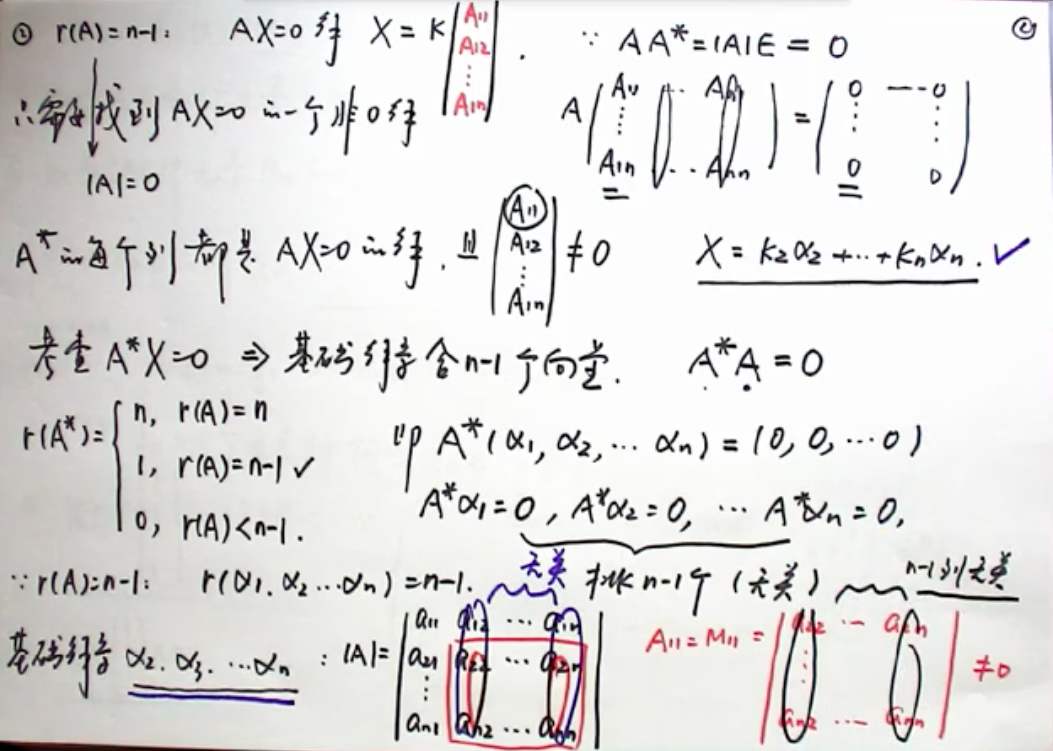 ② r(A)=n-1: AX=0 解 X=k(A11 A12 ⋮ A1n). ∵ AA*=|A|E=0 ②
只需找到 AX=0 的一个非0解
A(A11 ⋮ A1n ... An1 ... Ann) = (0 ---0 ⋮ ⋮ 0 0)
|A|=0
A*的每个列都是 AX=0 的解, 且 (A11 A12 ⋮ A1n) ≠0 X=k2α2+…+knαn. ✓
考查 A*X=0 ⇒ 基础解系含 n-1 个向量. A*A=0
r(A*)= { n, r(A)=n
1, r(A)=n-1 ✓
0, r(A)<n-1.
即 A*(α1, α2, … αn)=(0, 0, …0)
A*α1=0, A*α2=0, … A*αn=0,
∵r(A)=n-1: r(α1, α2 …αn)=n-1. 无关 找 n-1个 (无关) n-1列无关
基础解系 α2, α3, …αn : |A|= | a11 a12 … a1n
a21 a22 … a2n
⋮
an1 an2 … ann |
A11=M11= | a22 … a2n
⋮
an2 … ann | ≠0